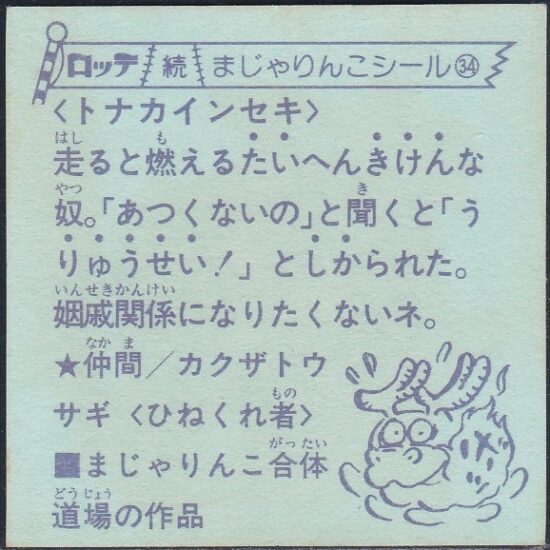 ロッテ 続 まじゃりんこシール㉞
〈トナカインセキ〉
走ると燃えるたいへんきけんな
奴。「あつくないの」と聞くと「う
りゅうせい！」としかられた。
姻戚関係になりたくないネ。
★仲間／カクザトウ
サギ〈ひねくれ者〉
■まじゃりんこ合体
道場の作品